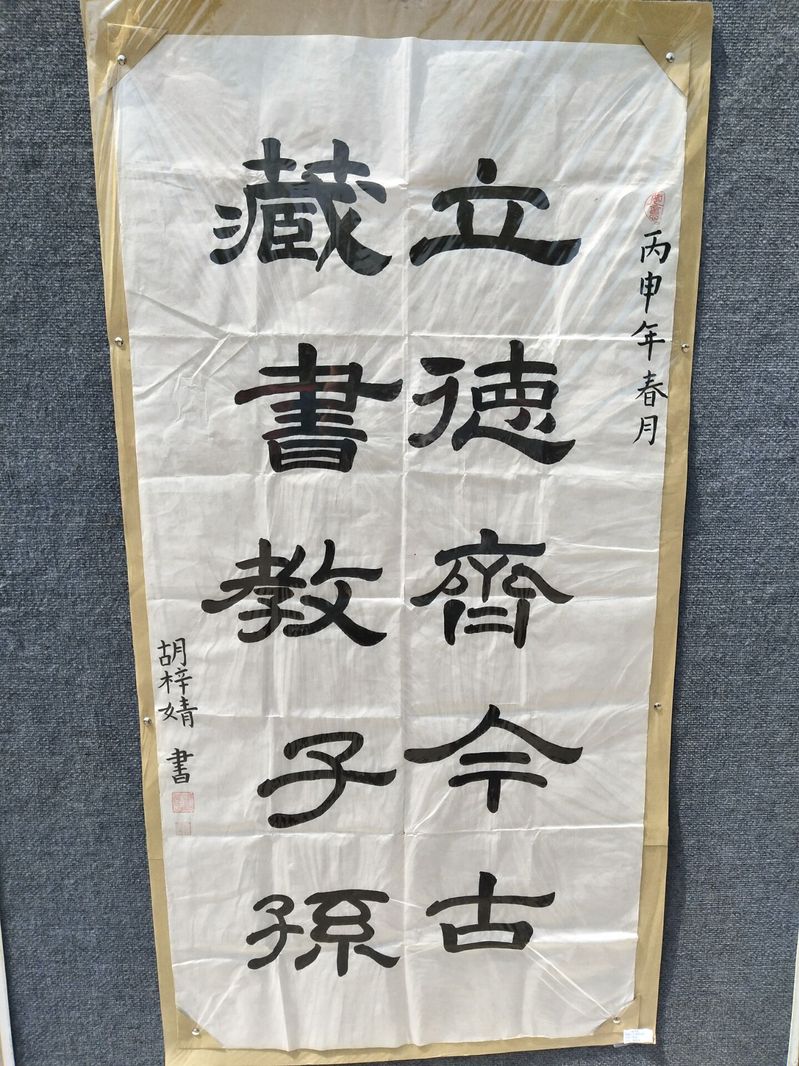 丙申年春月
立德齊今古
藏書教子孫
胡梓婧 書